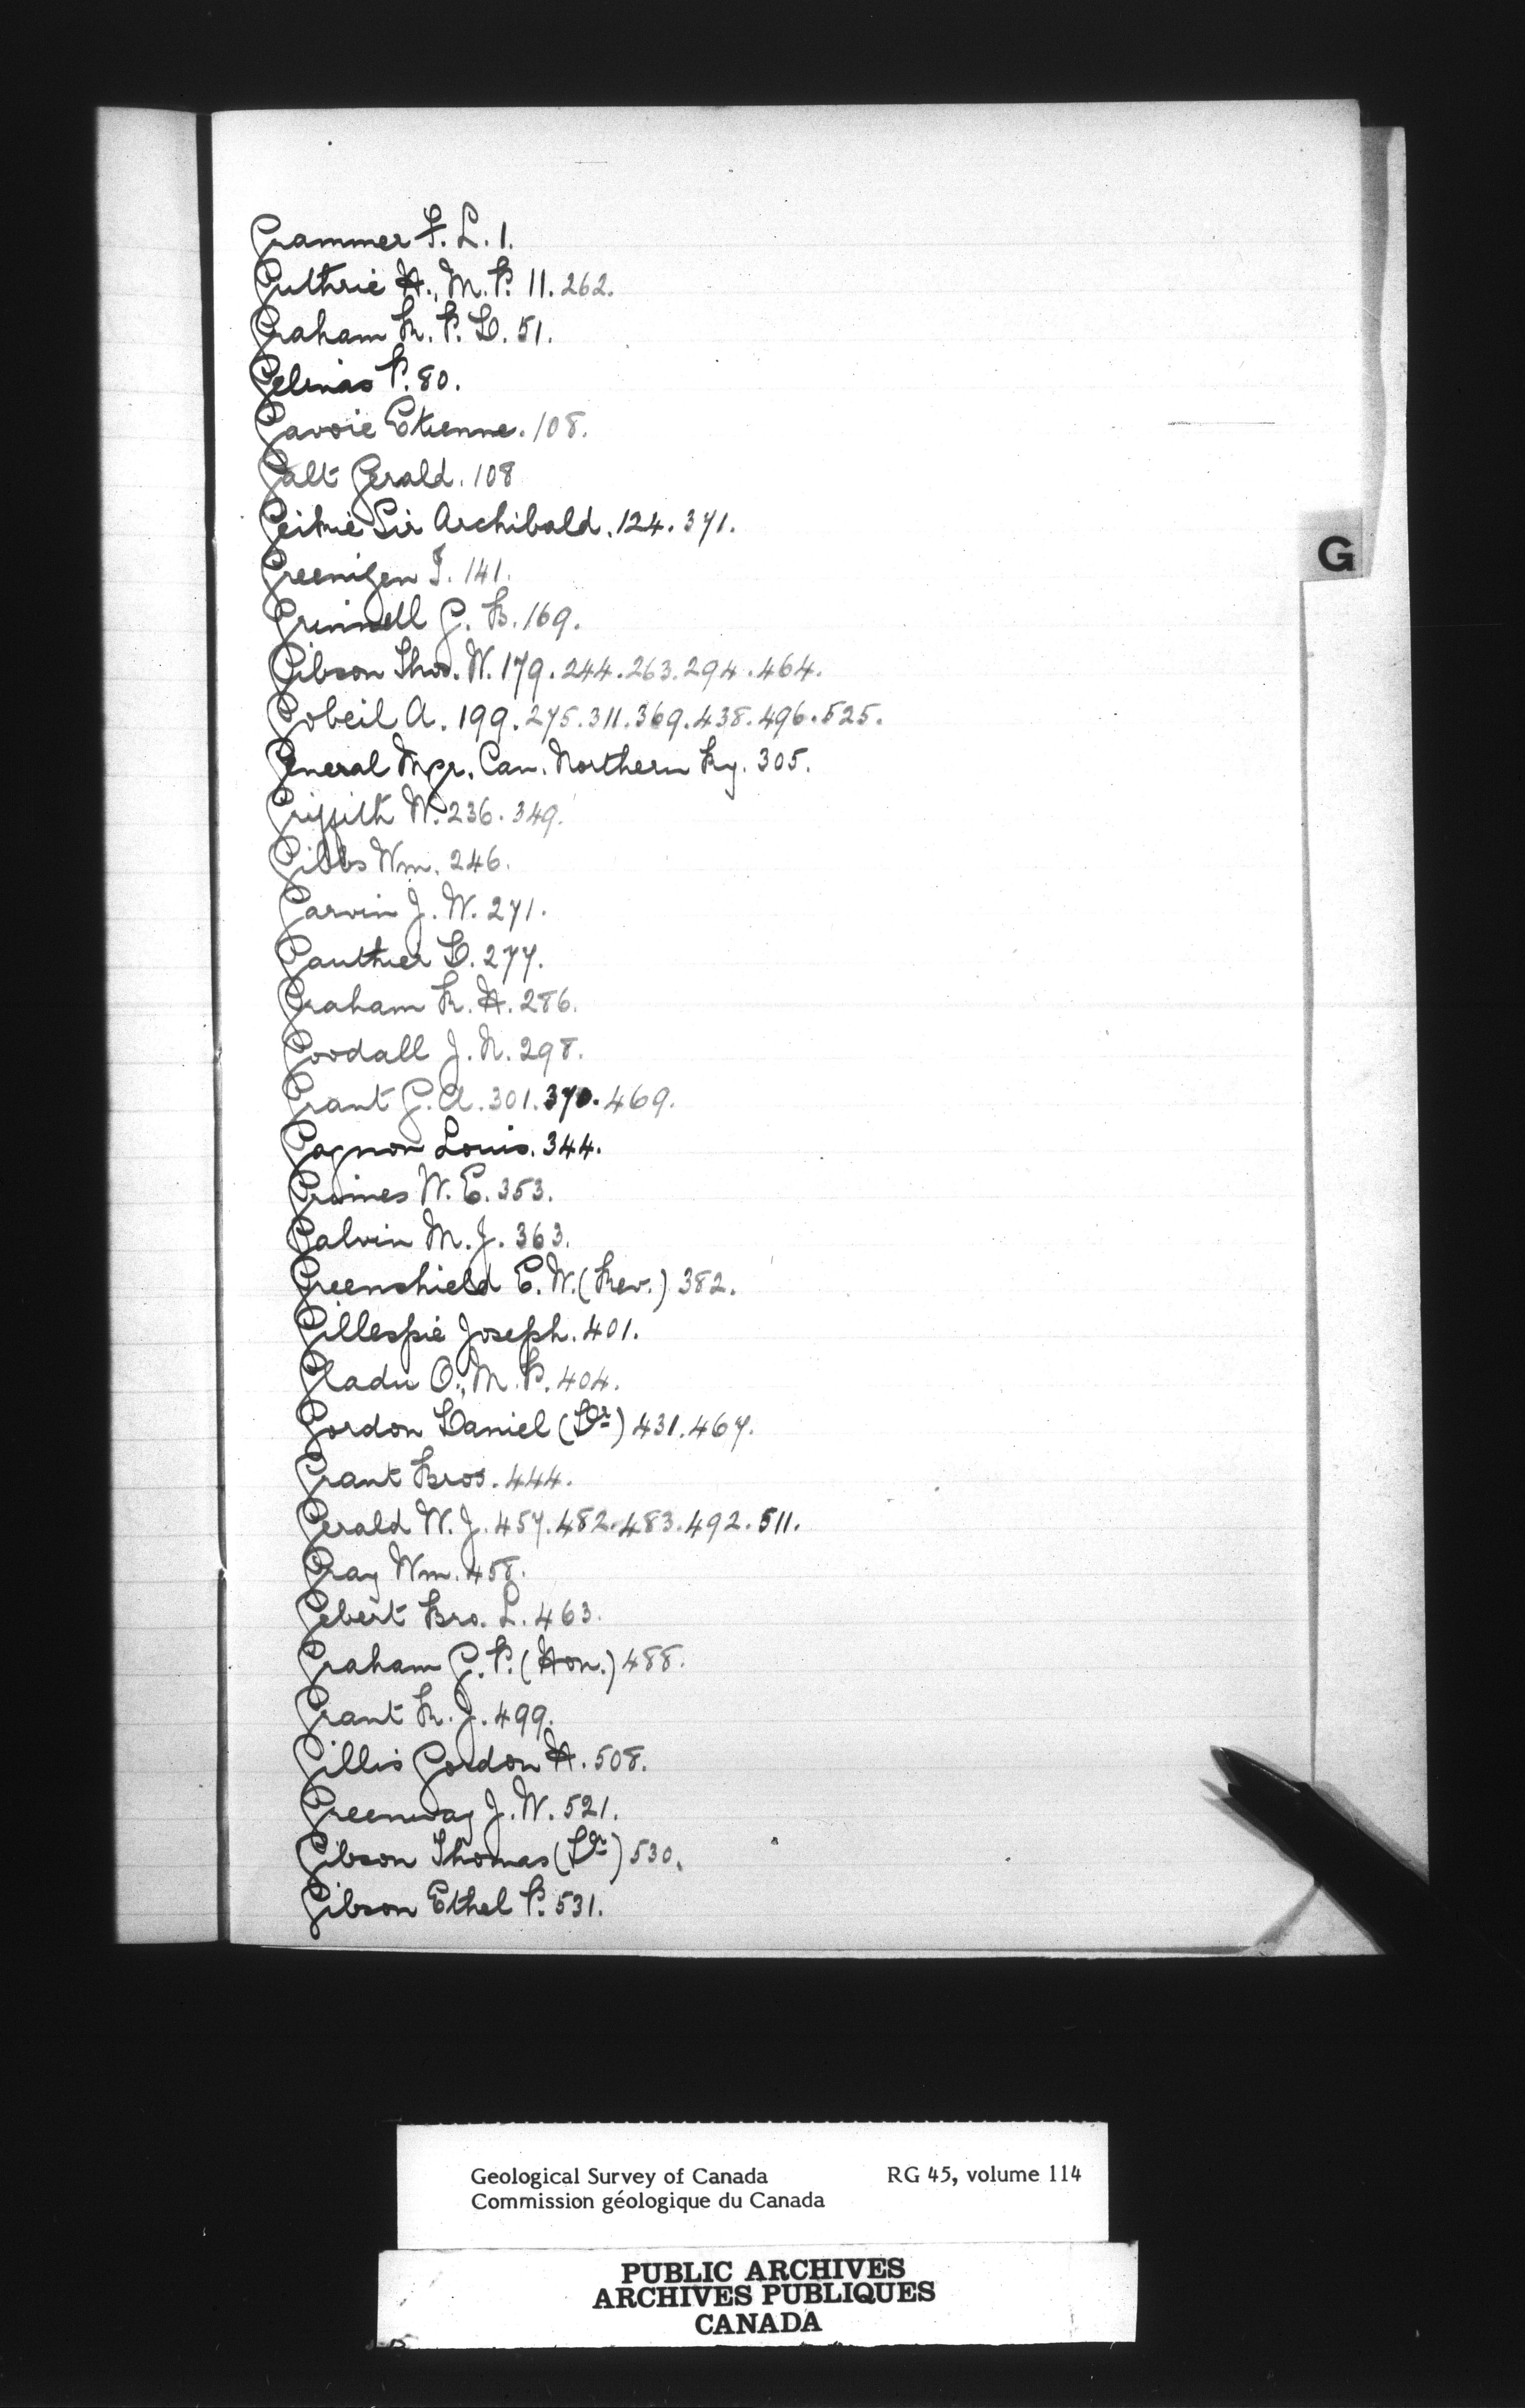 Grammer F. L. 1.
Guthrie H., M. P. 11. 262.
Graham R. P. D. 51.
Gelinas P. 80.
Gavoie Etienne. 108.
Galt Gerald. 108
Geikie Sir Archibald. 124. 371.
Greenizen J. 141.
Grinnell G. B. 169.
Gibson Thos. W. 179. 244. 263. 294. 464.
Gobeil A. 199. 275. 311. 369. 438. 496. 525.
General Mgr. Can. Northern Ry. 305.
Griffith W. 236. 349.
Gibbs Wm. 246.
Garvin J. W. 271.
Gauthier D. 277.
Graham R. H. 286.
Goodall J. N. 298.
Grant G. A. 301. 370. 469.
Gagnon Louis. 344.
Graines W. E. 353.
Galvin M. J. 363.
Greenshield E. W. (Rev.) 382.
Gillespie Joseph. 401.
Gladu O., M. P. 404.
Gordon Daniel (Dr) 431. 467.
Grant Bros. 444.
Gerald W. J. 457. 482. 483. 492. 511.
Gray Wm. 458.
Gebert Bro. L. 463.
Graham G. P. (Hon.) 488.
Grant R. J. 499.
Gillis Gordon H. 508.
Greenway J. W. 521.
Gibson Thomas (Dr) 530.
Gibson Ethel P. 531.
G
Geological Survey of Canada RG 45, volume 114
Commission géologique du Canada
PUBLIC ARCHIVES
ARCHIVES PUBLIQUES
CANADA